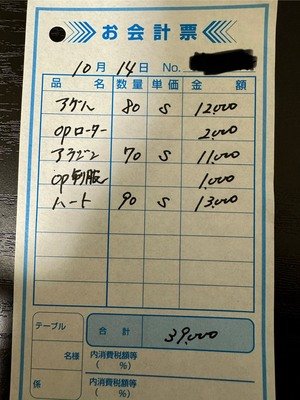 お会計票
10月 14日 No.
品名 数量 単価 金額
アゲハ 80 S 12,000
opローター 2,000
アラジン 70 S 11,000
op制服 1,000
ハート 90 S 13,000
テーブル
名様
係
合計 39,000
内消費税額等
( %)
内消費税額等
( %)